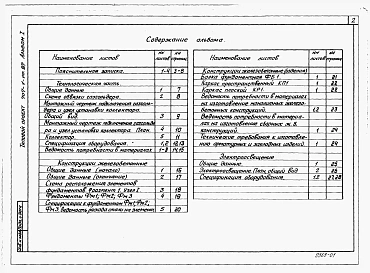 2
Содержание альбома
Наименование листов
№№ листов
№№ страниц
Пояснительная записка. 1-4 3-6
Технологическая часть
Общие данные 1 7
Схема обвязки газгольдера 2 8
Монтажный чертеж подключения газголь-
дера и установки коллектора.
Общий вид 3 9
Монтажный чертеж подключения газгольде-
ра и узел установки коллектора. План 4 10
Коллектор. 5 11
Спецификация оборудования 1,2 12,13
Ведомость потребности в материалах 1-3 14,15
Конструкции железобетонные
Общие данные (начало) 1 16
Общие данные (окончание) 2 17
Схема расположения элементов
фундаментов. Фрагмент 1, узел 1 3 18
Фундаменты Фм1, Фм2, Фм3 4 19
Спецификация к фундаментам Фм1, Фм2,
Фм3. Ведомость расхода стали на элемент. 5 20
Наименование листов
№№ листов
№№ страниц
Конструкции железобетонные (изделия)
Балка фундаментная ФБ1 1 21
Каркас пространственный КП1 1 22
Каркас плоский КР1 1 23
Ведомость потребности в материалах
на изготовление монолитных железо-
бетонных конструкций. 1,2 23
Ведомость потребности в материа-
лах на изготовление сборных ж.б.
конструкций. 1 24
Технические требования к изготовле-
нию арматурных и закладных изделий. 1 24
Электроосвещение
Общие данные 1 25
Электроосвещение. План, общий вид 2 26
Спецификация оборудования. 1,2 27,28
Типовой проект
Альбом I